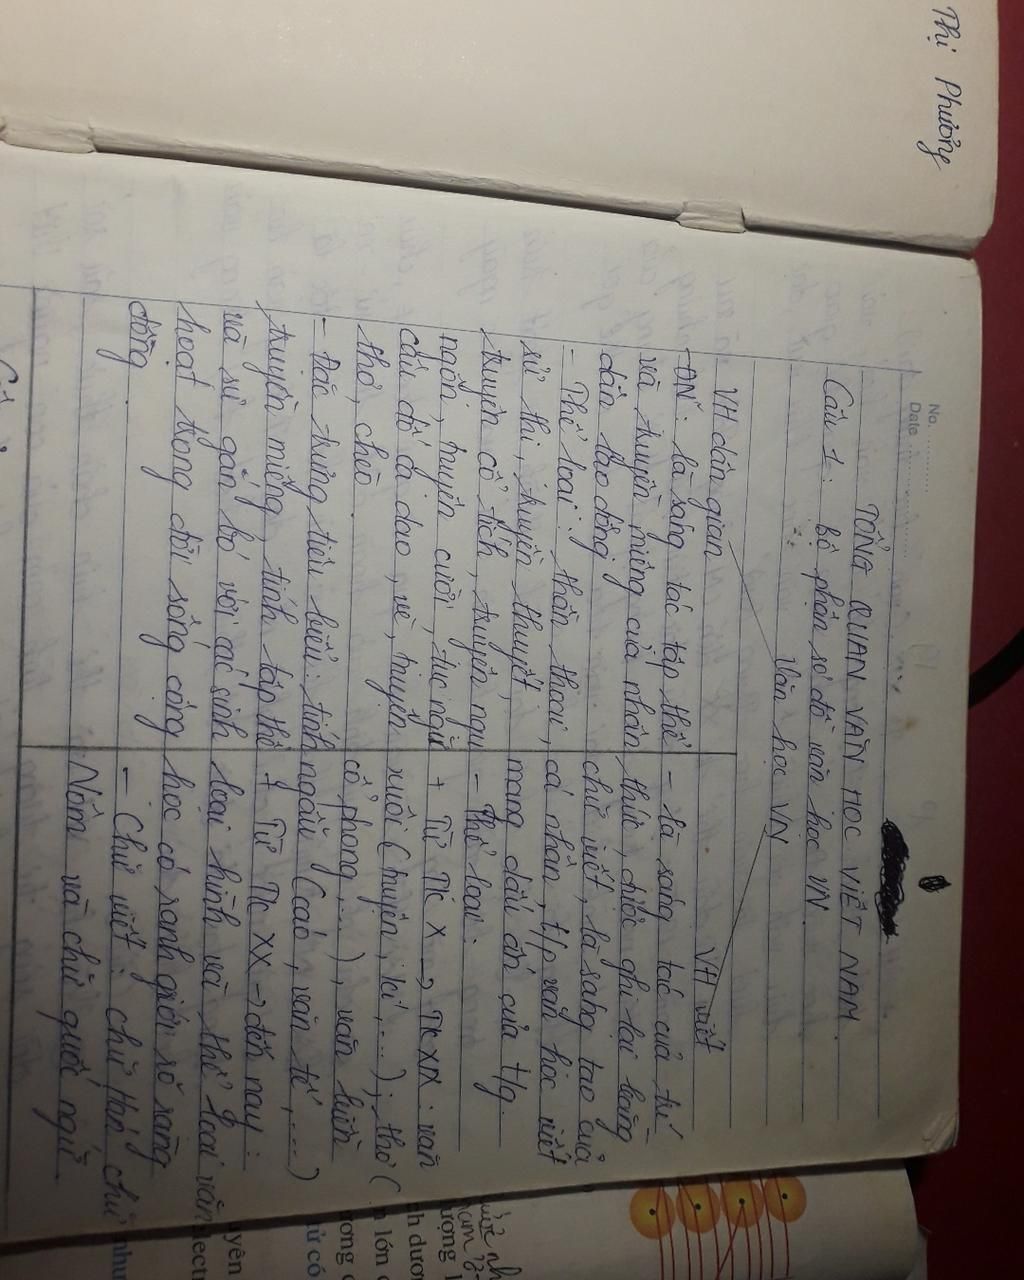 Thị Phương
No.
Date
TỔNG QUAN VĂN HỌC VIỆT NAM
Câu 1: bộ phận sơ đồ văn học VN.
Văn học VN
VH dân gian
VH viết
-ĐN: là sáng tác tập thể
và truyền miệng của nhân
dân lao động
- Thể loại: thần thoại,
sử thi, truyền thuyết,
truyện cổ tích, truyện ngụ
ngôn, truyện cười, tục ngữ
câu đố ca dao, vè, truyện
thơ, chèo
- Đặc trưng tiêu biểu: tính
truyền miệng, tính tập thể
và sự gắn bó với các sinh
hoạt trong đời sống cộng
đồng
- là sáng tác của trí
thức, được ghi lại bằng
chữ viết, là sáng tạo của
cá nhân, t/p văn học viết
mang dấu ấn của t/g.
- Thể loại:
+ Từ TK X → TK XIX: văn
xuôi (truyện, kí,...); thơ (
cổ phong,...), văn biền
ngẫu (cáo, văn tế,...)
+ Từ TK XX → đến nay:
loại hình và thể loại văn
học có ranh giới rõ ràng
- Chữ viết: chữ Hán, chữ
Nôm và chữ quốc ngữ.